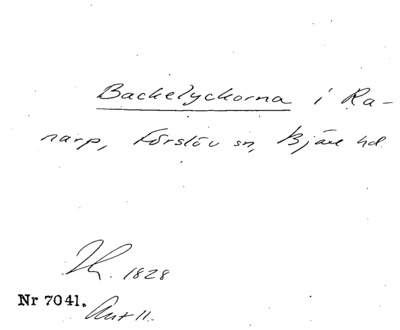 Backelyckorna i Ra-
narp, Förslöv sn, Bjäre hd.
1828
Nr 7041.
Akt 11.